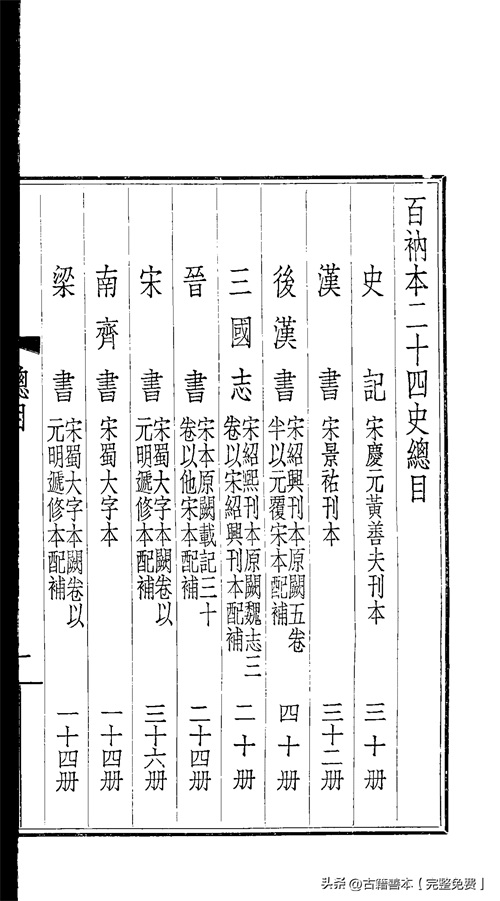 百衲本二十四史總目
史記 宋慶元黃善夫刊本 三十册
漢書 宋景祐刊本 三十二册
後漢書 宋紹興刊本原闕五卷半以元覆宋本配補 四十册
三國志 宋紹熙刊本原闕魏志三卷以宋紹興刊本配補 二十册
晉書 宋本原闕載記三十卷以他宋本配補 二十四册
宋書 宋蜀大字本闕卷以元明遞修本配補 三十六册
南齊書 宋蜀大字本 一十四册
梁書 宋蜀大字本闕卷以元明遞修本配補 一十四册
總目
頭条 @古籍善本【完整免费】